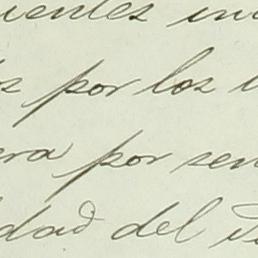 uentes in
os por los
era por sen
dad del